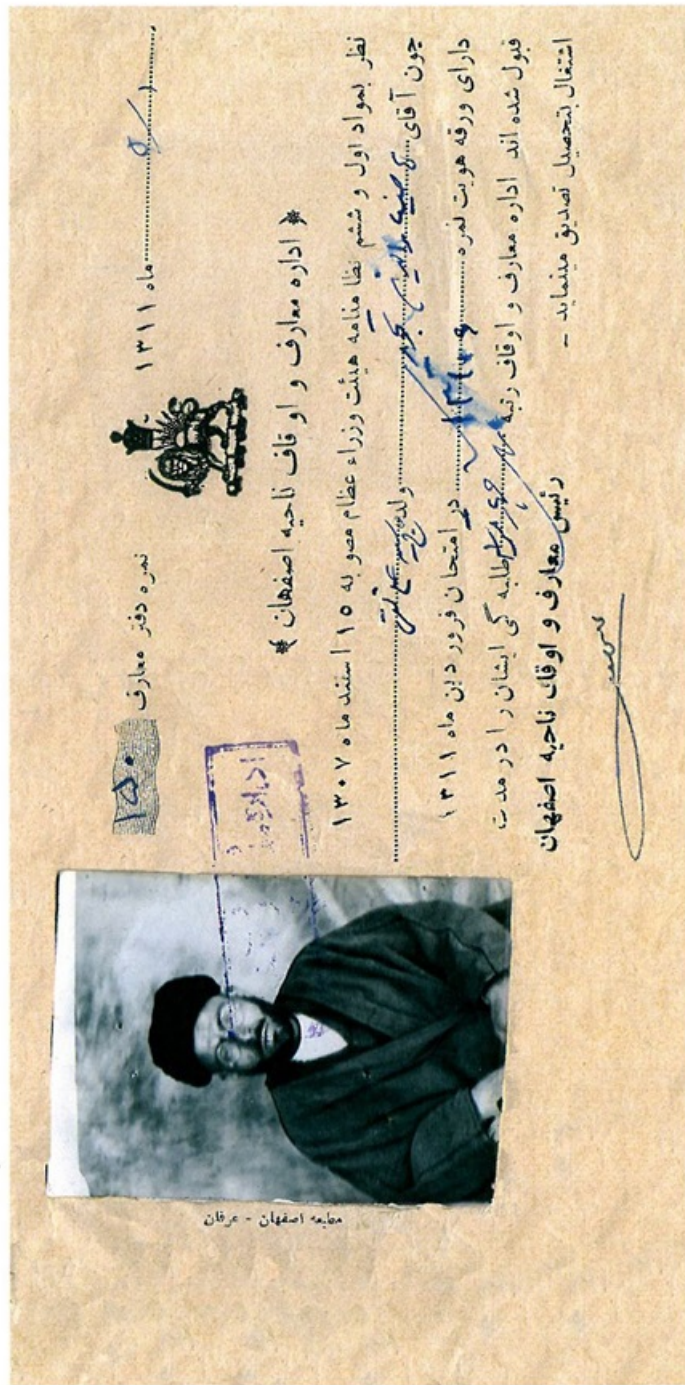 نمره دفتر معارف ۱۵۰
ماه ۱۳۱۱
﴿ اداره معارف و اوقاف ناحیه اصفهان ﴾
نظر بمواد اول و ششم نظامنامه هیئت وزراء عظام مصوبه ۱۵ اسفند ماه ۱۳۰۷
چون آقای ولد
دارای ورقه هویت نمره در امتحان فروردین ماه ۱۳۱۱
قبول شده اند اداره معارف و اوقاف رتبه طلبه گی ایشان را در مدت
اشتغال بتحصیل تصدیق مینماید –
رئیس معارف و اوقاف ناحیه اصفهان
مطبعه اصفهان - عرفان